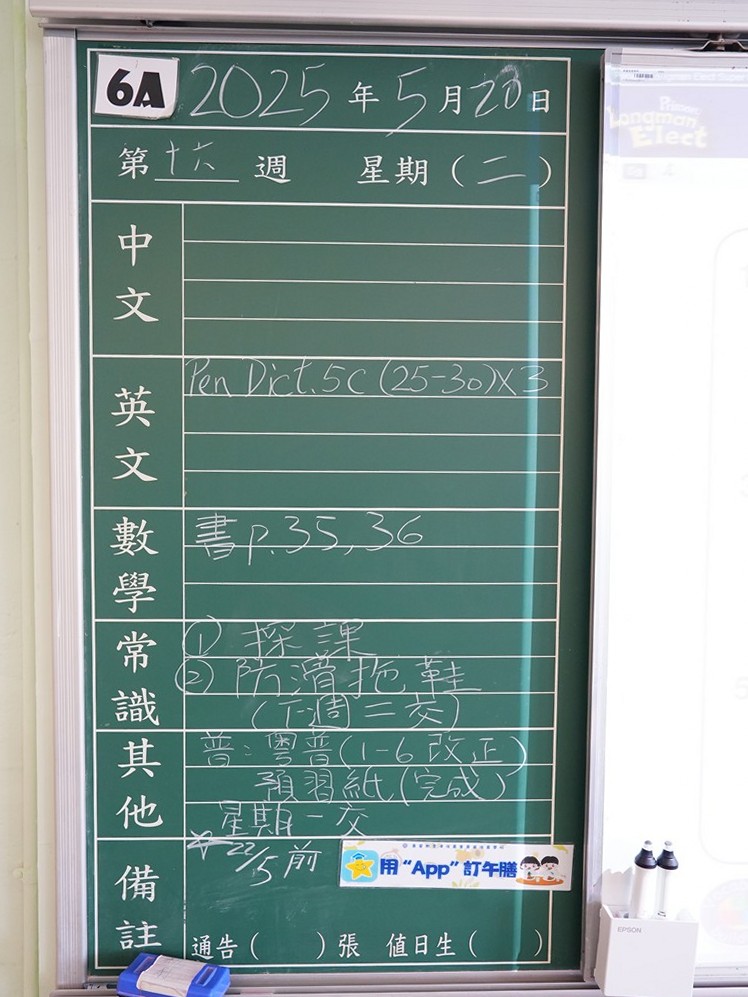 6A 2025年5月20日
第十六週 星期(二)
中文
英文
Pen Dict. 5C (25-30)X3
數學
書 p.35,36
常識
① 探課
② 防滑拖鞋
(下週二交)
其他
普:粵普(1-6改正)
預習紙(完成)
星期一交
備註
22/5前
用“App”訂午膳
通告( )張 值日生( )
Primary
Longman
Elect
EPSON